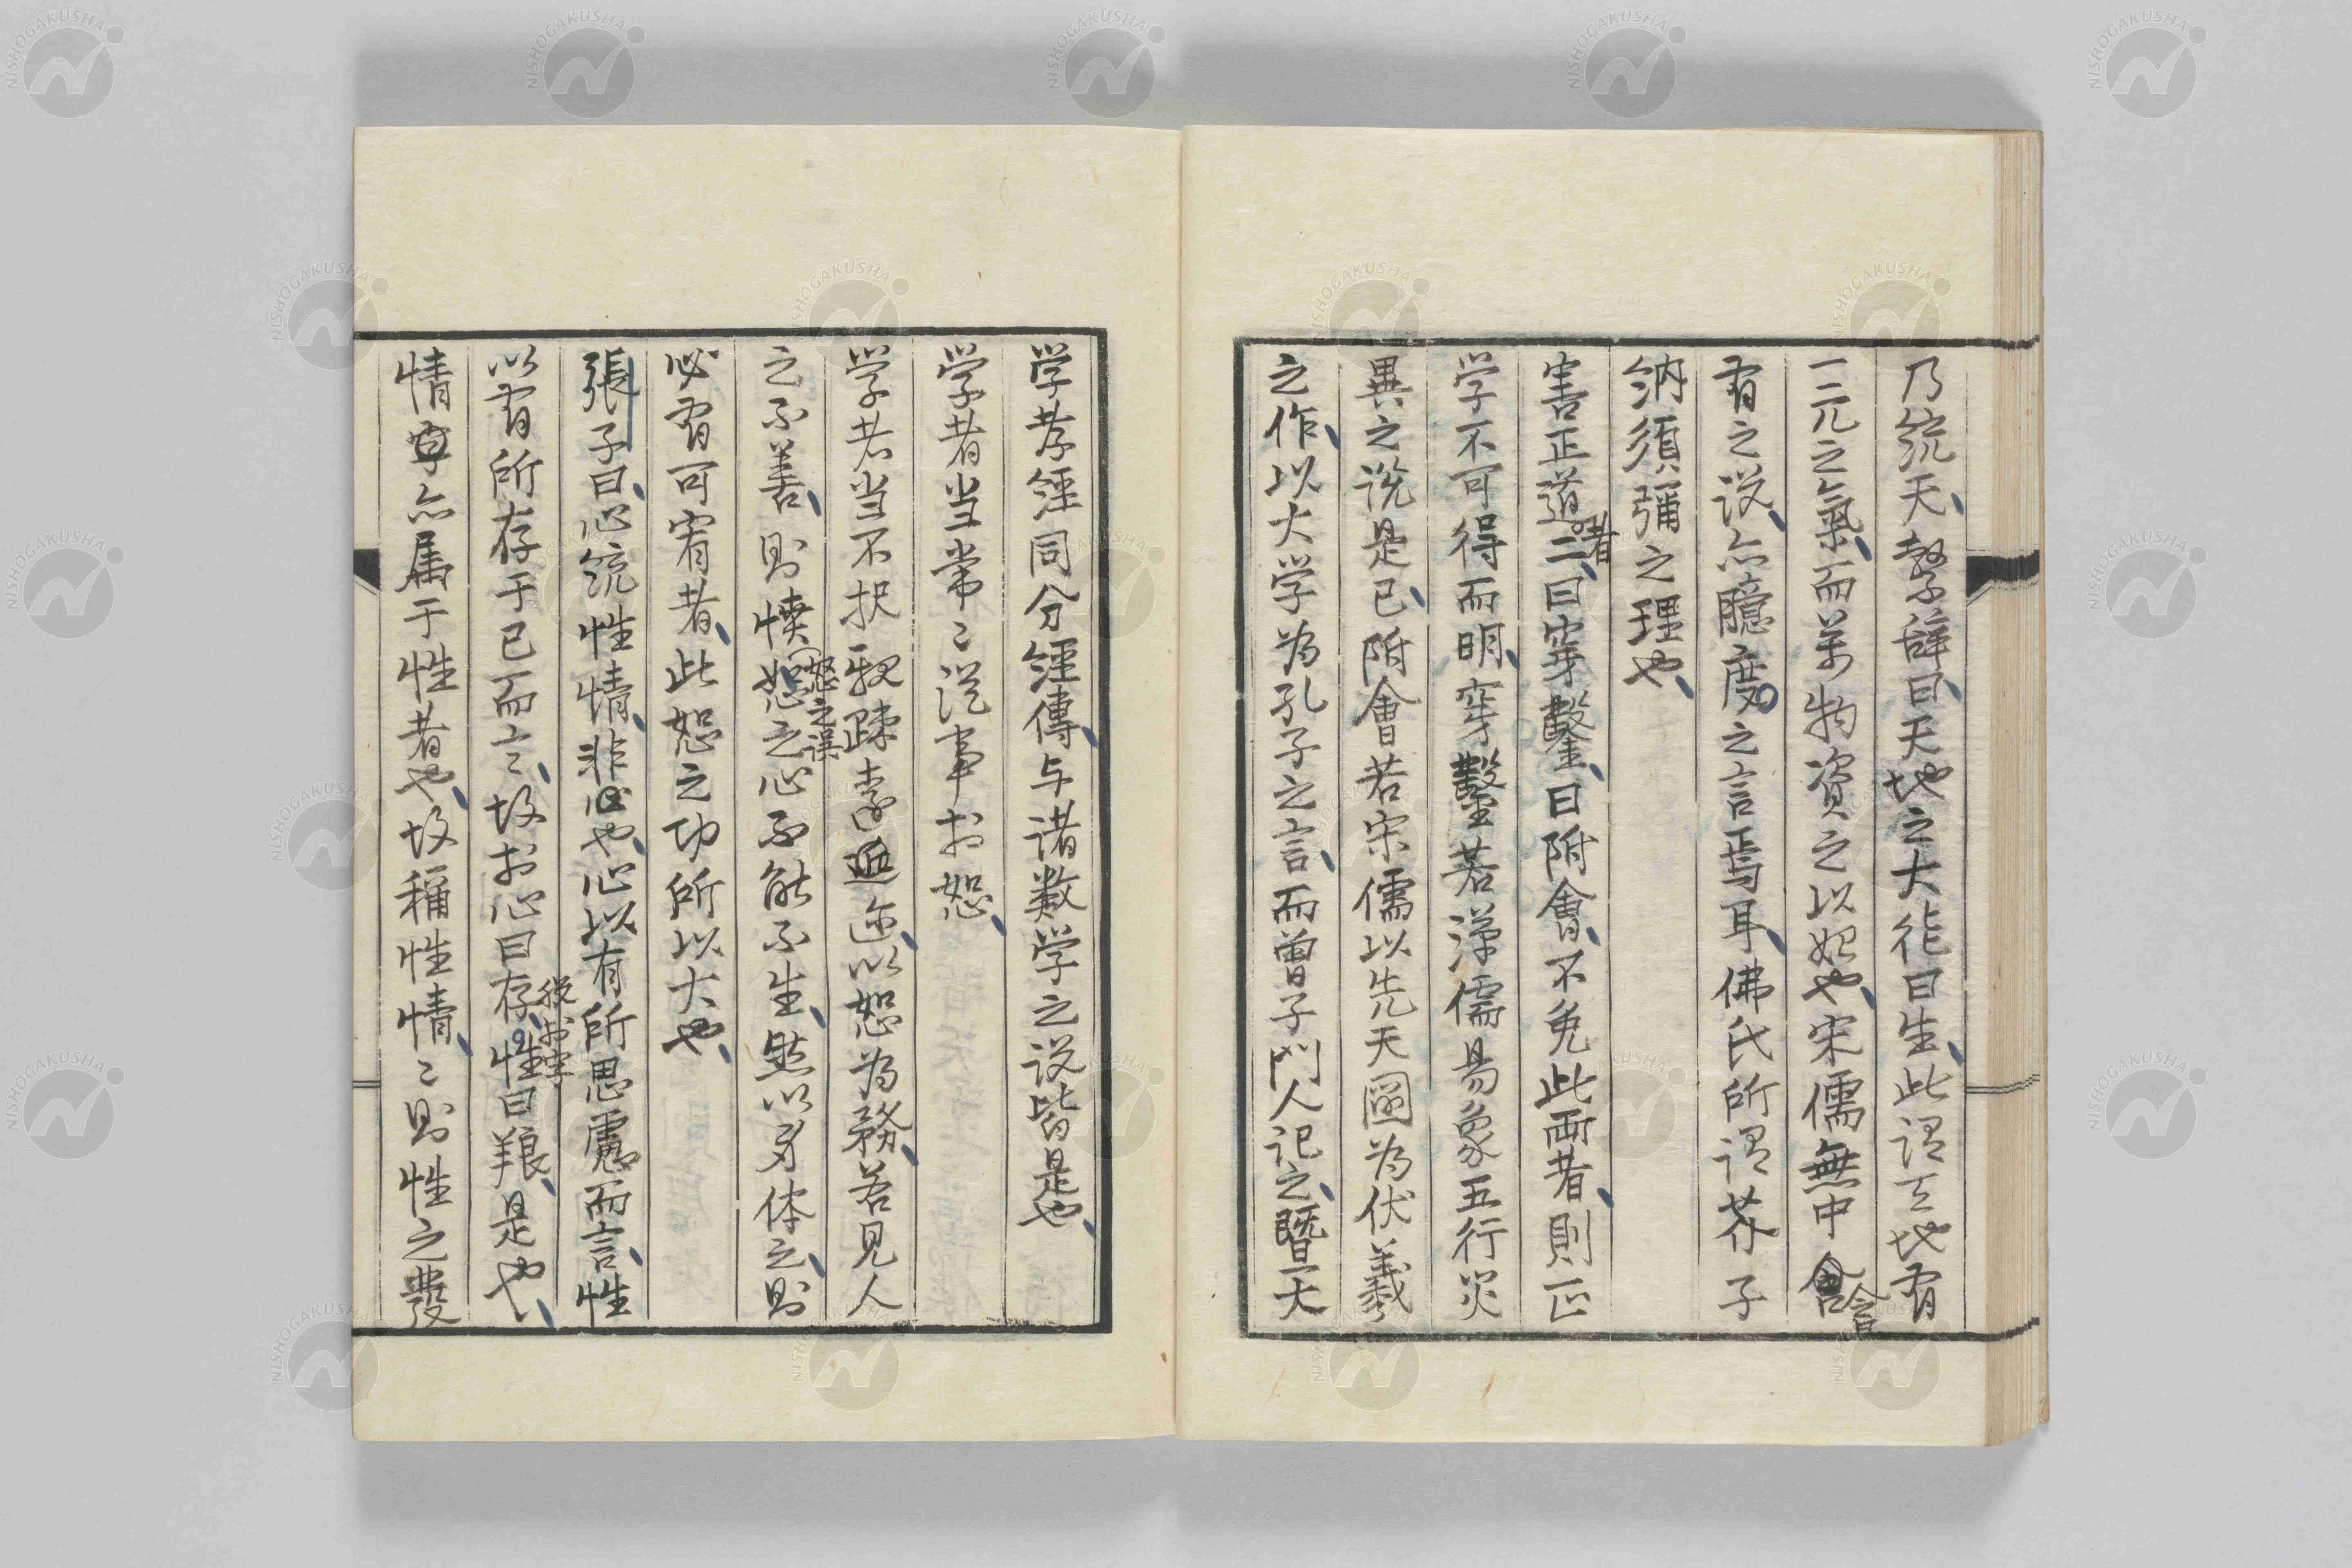 乃統天、繫辞曰、天地之大徳曰生、此謂天地有
一元之氣、而萬物資之以始也、宋儒無中含
含
有之説、亦臆度之言焉耳、佛氏所謂芥子
納須彌之理也、
害正道者二、曰穿鑿、曰附會、不免此両者、則正
学不可得而明、穿鑿若漢儒易象五行災
異之説是已、附會若宋儒以先天圖為伏羲
之作、以大学為孔子之言、而曽子門人記之、曁夫
学孝經同分經傳、与諸数学之説皆是也、
学者当常〻従事於恕、
学者当不択親疎遠近邇、以恕為務、若見人
之不善、則憤恕之心不能不生、然以身体之、則
(怒之誤
必有可宥者、此恕之功所以大也、
張子曰、心統性情、非也、心以有所思慮而言、性
以有所存于己而言、故於心曰存、性曰養、是也、
脱於字
情字亦属于性者也、故稱性情、〻則性之發
NISHOGAKUSHA